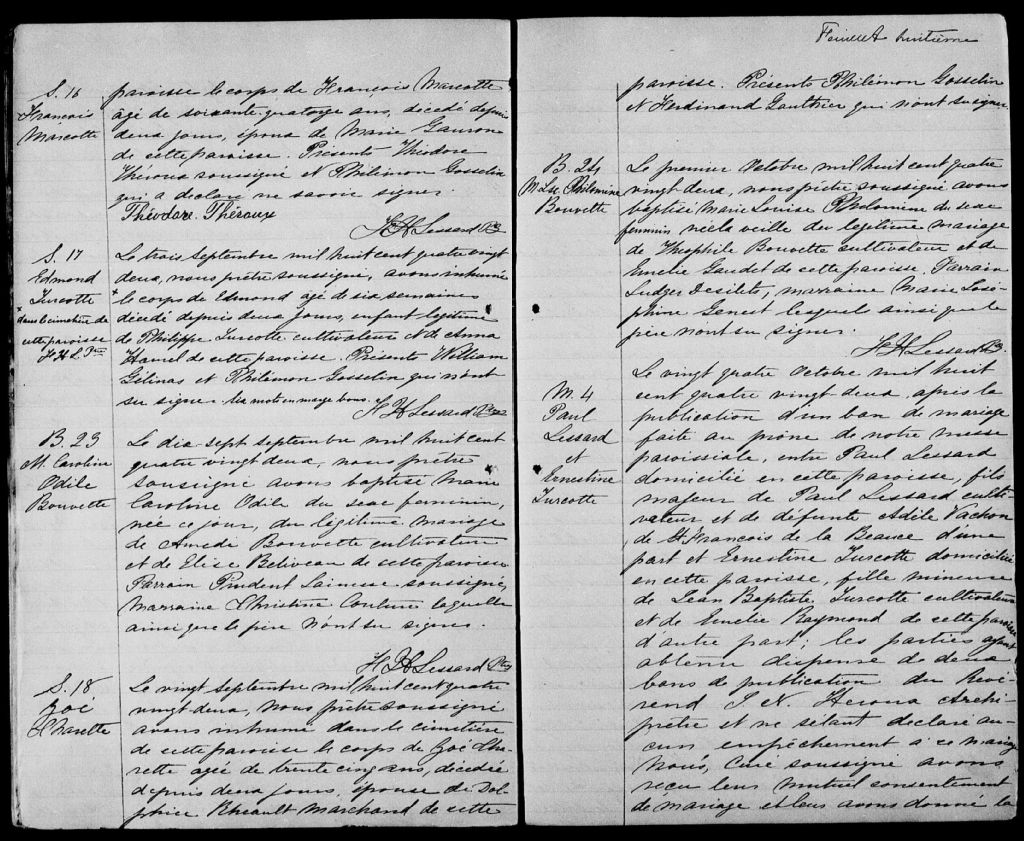 S. 16
François
Marcotte
paroisse le corps de François Marcotte
âgé de soixante-quatorze ans, décédé depuis
deux jours, époux de Marie Gauron
de cette paroisse. Présents Théodore
Théroux soussigné et Philémon Gosselin
qui a déclaré ne savoir signer.
Théodore Théroux
H. H. Lessard Ptre
S. 17
Edmond
Turcotte
x dans le cimetière de
cette paroisse
J. H. L. Ptre
Le trois septembre mil huit cent quatre vingt
deux, nous prêtre soussigné, avons inhumé
x le corps de Edmond âgé de six semaines
décédé depuis deux jours, enfant légitime
de Philippe Turcotte cultivateur et de Anna
Hamel de cette paroisse. Présents William
Gélinas et Philémon Gosselin qui n'ont
su signer. les mots en marge bons.
H. H. Lessard Ptre
B. 23
M. Caroline
Odile
Bouvette
Le dix sept septembre mil huit cent
quatre vingt deux, nous prêtre
soussigné avons baptisé Marie
Caroline Odile du sexe feminin,
née ce jour, du légitime mariage
de Amedé Bouvette cultivateur
et de Elise Beliveau de cette paroisse
Parrain Prudent Lainesse soussigné,
Marraine Christine Couture laquelle
ainsi que le père n'ont su signer.
H. H. Lessard Ptre
S. 18
Zoé
Charette
Le vingt septembre mil huit cent quatre
vingt deux, nous prêtre soussigné
avons inhumé dans le cimetière
de cette paroisse le corps de Zoé Cha-
rette agée de trente cinq ans, décédée
depuis deux jours, épouse de Dol-
phice Rheault marchand de cette
Feuillet huitième
paroisse. Présents Philémon Gosselin
et Ferdinand Gauthier qui n'ont su signer.
B. 24
M. Lse Philomine
Bouvette
Le premier Octobre mil huit cent quatre
vingt deux, nous prêtre soussigné avons
baptisé Marie Louise Philomine du sexe
feminin née la veille du légitime mariage
de Théophile Bouvette cultivateur et de
Emelie Gaudet de cette paroisse, Parrain
Ludger Desilets, marraine Marie José-
phine Genest lesquels ainsi que le
père n'ont su signer.
H. H. Lessard Ptre
M. 4
Paul
Lessard
et
Ernestine
Turcotte
Le vingt quatre Octobre mil huit
cent quatre vingt deux, après la
publication d'un ban de mariage
faite au prône de notre messe
paroissiale, entre Paul Lessard
domicilié en cette paroisse, fils
majeur de Paul Lessard culti-
vateur et de défunte Adèle Vachon,
de St François de la Beauce d'une
part et Ernestine Turcotte domiciliée
en cette paroisse, fille mineure
de Jean Baptiste Turcotte cultivateur
et de Emelie Raymond de cette paroisse
d'autre part; les parties ayant
obtenu dispense de deux
bans de publication du Revé-
rend J. N. Heroux Archi-
prêtre et ne s'étant déclaré au-
cun empêchement à ce mariage
Nous, Curé soussigné avons
reçu leur mutuel consentement
de mariage et leur avons donné la